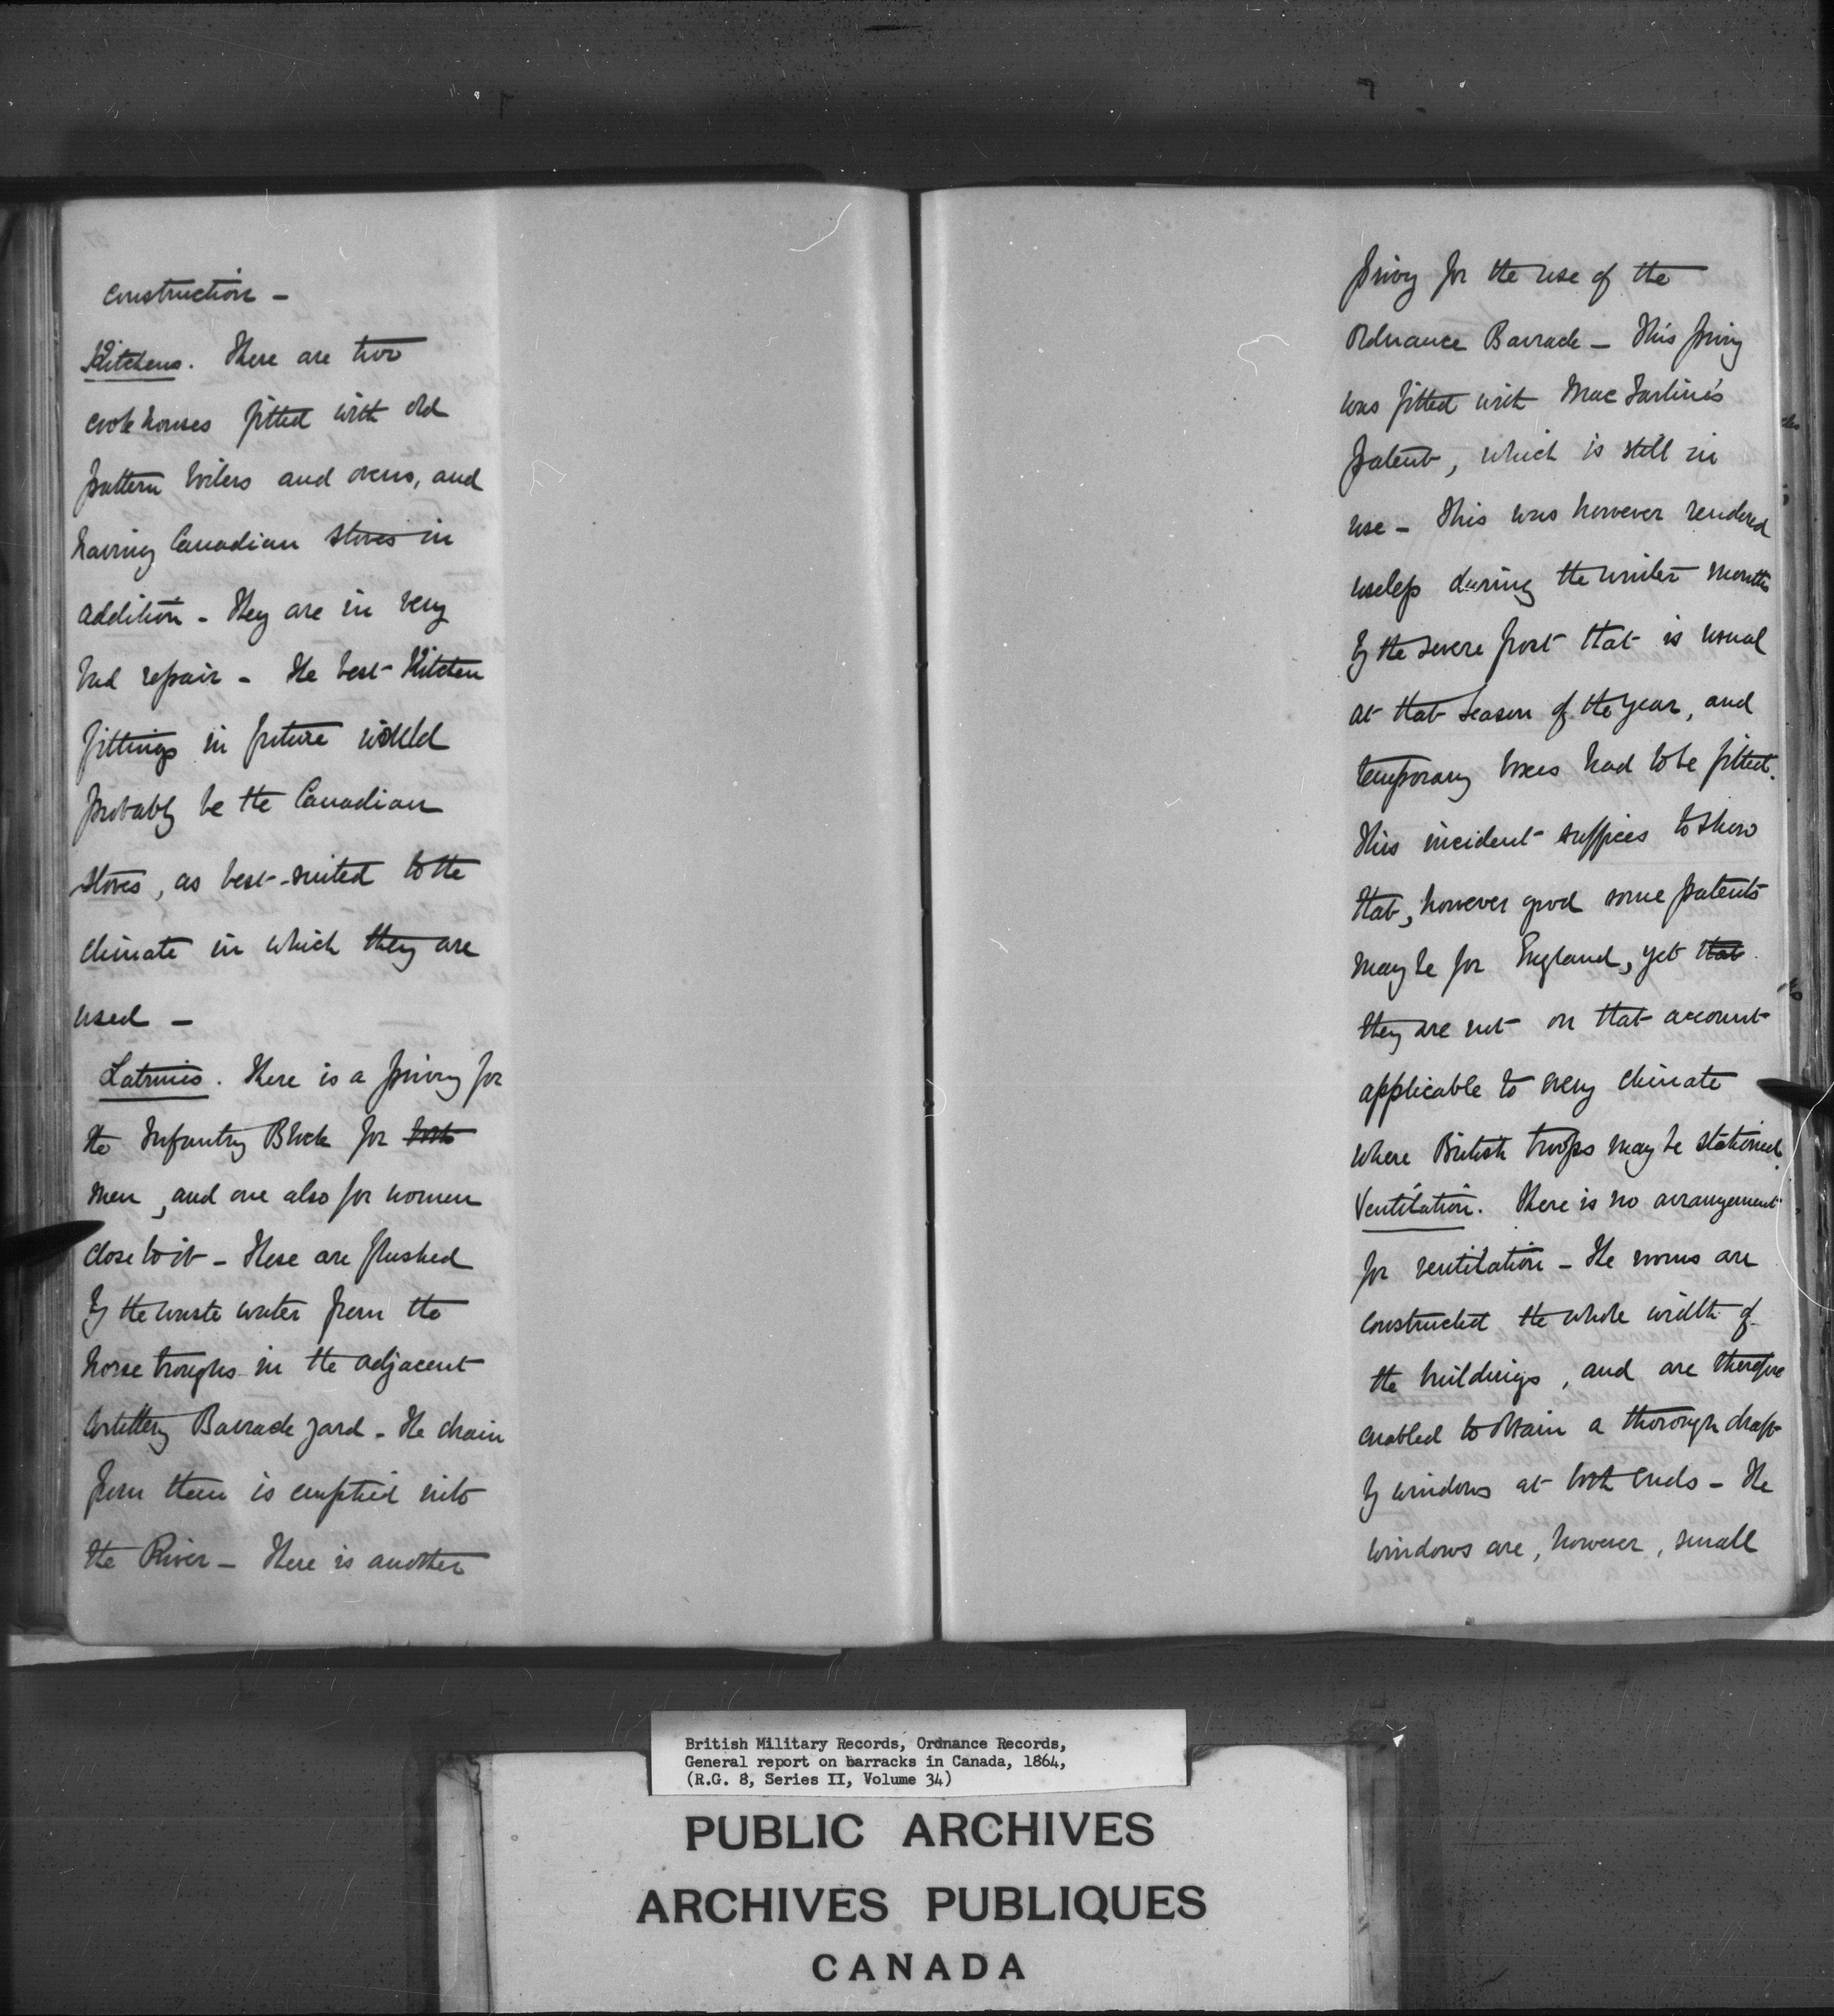 construction -
Kitchens. There are two
cookhouses fitted with old
pattern boilers and ovens, and
having Canadian stoves in
addition - They are in very
bad repair - The best Kitchen
fittings in future would
probably be the Canadian
stoves, as best suited to the
climate in which they are
used -
Latrines. There is a privy for
the Infantry Block for both
men, and one also for women
close to it - These are flushed
by the waste water from the
horse troughs in the adjacent
Artillery Barrack yard - The drain
from them is emptied into
the River - There is another
privy for the use of the
Ordnance Barrack - This privy
was fitted with MacFarline's
patent, which is still in
use - This was however rendered
useless during the winter months
by the severe frost that is usual
at that season of the year, and
temporary boxes had to be fitted.
This incident suffices to show
that, however good some patents
may be for England, yet that
they are not on that account
applicable to every climate
where British troops may be stationed.
Ventilation. There is no arrangement
for ventilation - The rooms are
constructed the whole width of
the buildings, and are therefore
enabled to obtain a thorough draft
by windows at both ends - The
windows are, however, small
British Military Records, Ordnance Records,
General report on barracks in Canada, 1864,
(R.G. 8, Series II, Volume 34)
PUBLIC ARCHIVES
ARCHIVES PUBLIQUES
CANADA